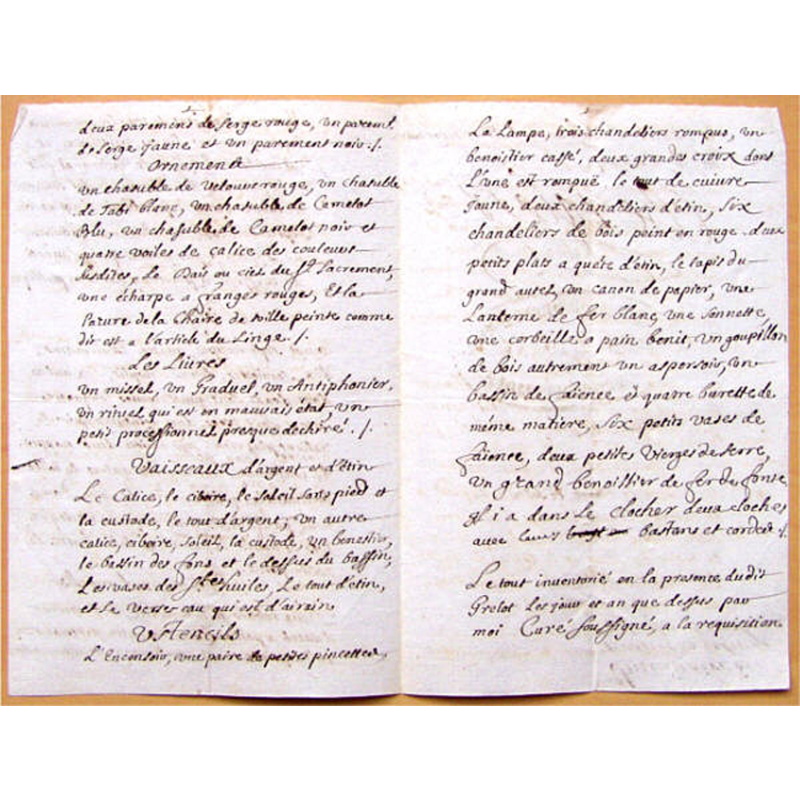 deux paremens de serge rouge, un parement
de serge jaune et un parement noir ./.
Ornements
un chasuble de velouut rouge, un chasuble
de Tabi blanc, un chasuble de Camelot
Blu, un chasuble de Camelot noir et
quatre voiles de calice des couleurs
susdites, Le Dais ou ciel du st Sacrement,
une écharpe a franges rouges, Et la
Parure de la Chaire de toille peinte comme
dit est a l'article du Linge ./.
Les Livres
un missel, un Graduel, un Antiphonier,
un rituel qui est en mauvais état, un
petit processionnel presque dechiré ./.
Vaisseaux d'argent et d'Etin
Le Calice, le ciboire, le soleil sans pied et
la custode, le tout d'argent, un autre
calice, ciboire, soleil, la custode, un benestier,
le bassin des fons et le dessus du bassin,
Les vases des Stes huiles, Le tout d'étin,
et Le verse eau qui est d'airain
Ustencils
L'Encensoir, une paire de petites pincettes,
La Lampe, trois chandeliers rompus, un
benoistier cassé, deux grandes croix dont
L'une est rompuë, le tout de cuivre
jaune, deux chandeliers d'étin, Six
chandeliers de bois peint en rouge, deux
petits plats a quête d'étin, le tapis du
grand autel, un canon de papier, une
Lanterne de fer blanc, une sonnette,
une corbeille a pain benit, un goupillon
de bois autrement un aspersoir, un
bassin de faience et quatre burette de
même matiere, Six petits vases de
faience, deux petites Vierges de terre,
un grand benoistier de fer de fonte
Il i a dans Le clocher deux cloches
avec leurs bastans et cordes ./.
Le tout inventorié en la presence dudit
Grelot Les jour et an que dessus par
moi Curé soussigné, a la requisition